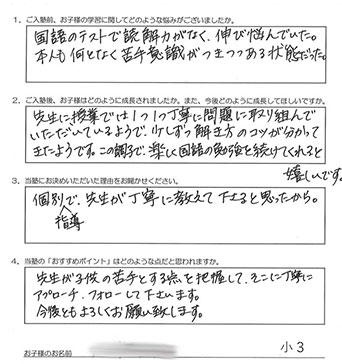 1. ご入塾前、お子様の学習に関してどのような悩みがございましたか。
国語のテストで読解力がなく、伸び悩んでいた。
本人も何となく苦手意識がつきつつある状態だった。
2. ご入塾後、お子様はどのように成長されましたか。また、今後どのように成長してほしいですか。
先生に授業では1つ1つ丁寧に問題に取り組んで
いただいているようで、少しずつ解き方のコツが分かって
きたようです。この調子で、楽しく国語の勉強を続けてくれると
嬉しいです。
3. 当塾にお決めいただいた理由をお聞かせください。
個別で、先生が丁寧に教えて下さると思ったから。
指導
4. 当塾の「おすすめポイント」はどのような点だと思われますか。
先生が子供の苦手とする点を把握して、そこに丁寧に
アプローチ・フォローして下さいます。
今後ともよろしくお願い致します。
お子様のお名前
小3